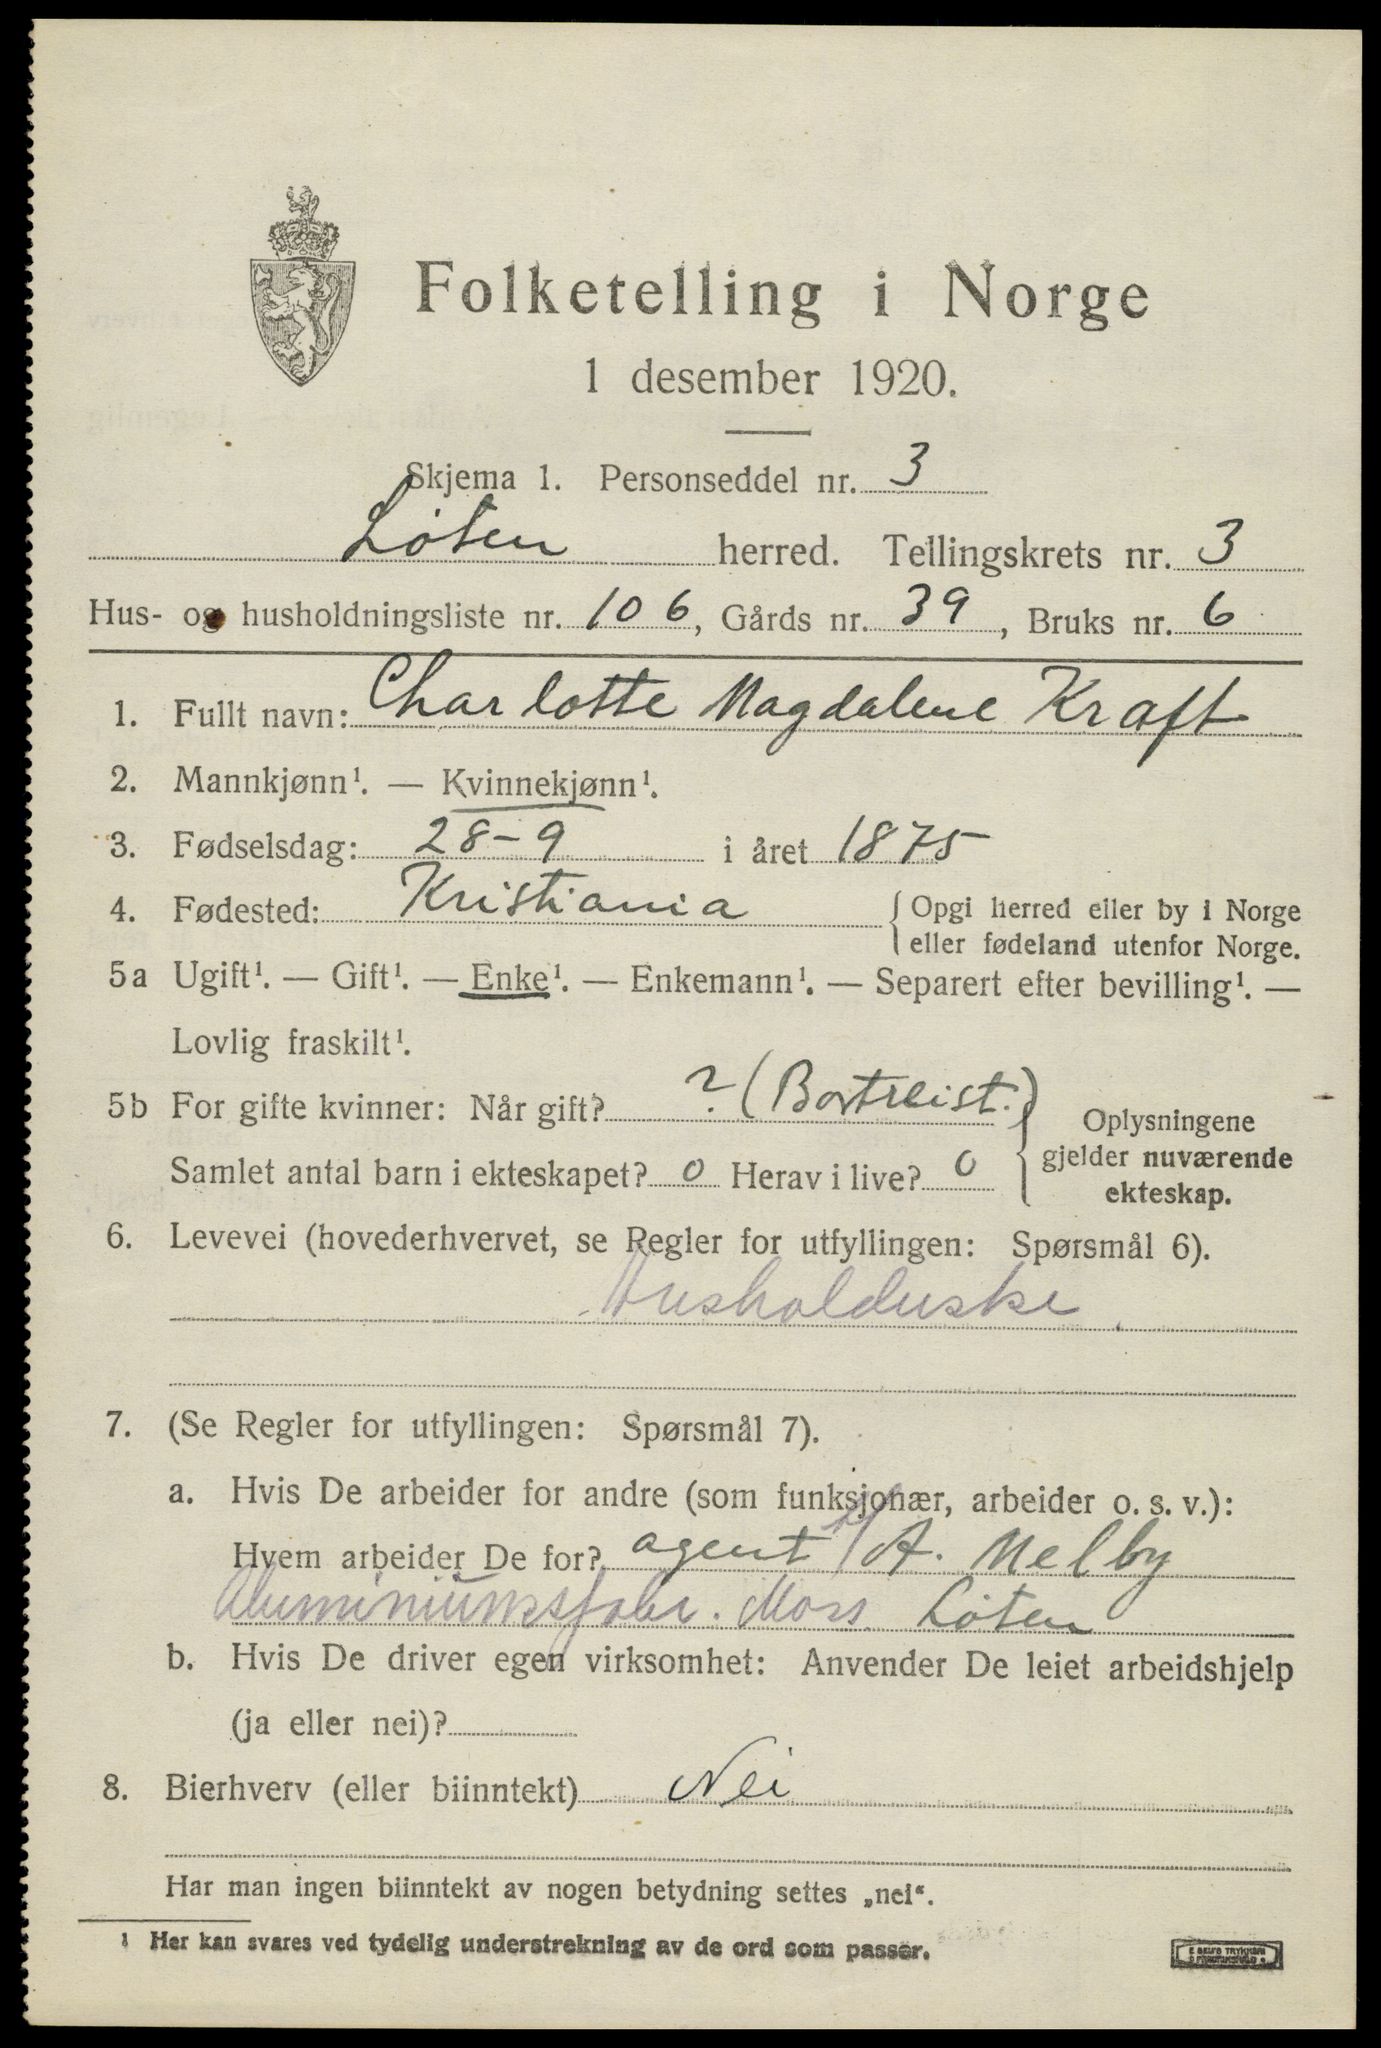 Folketelling i Norge
1 desember 1920.
Skjema 1. Personseddel nr. 3
Løten herred. Tellingskrets nr. 3
Hus- og husholdningsliste nr. 106, Gårds nr. 39, Bruks nr. 6
1. Fullt navn: Charlotte Magdalene Kraft
2. Mannkjønn¹. — Kvinnekjønn¹.
3. Fødselsdag: 28-9 i året 1875
4. Fødested: Kristiania { Opgi herred eller by i Norge
eller fødeland utenfor Norge.
5a Ugift¹. — Gift¹. — Enke¹. — Enkemann¹. — Separert efter bevilling¹. —
Lovlig fraskilt¹.
5b For gifte kvinner: Når gift? ? (Bortreist.)
Samlet antal barn i ekteskapet? 0 Herav i live? 0
} Oplysningene
gjelder nuværende
ekteskap.
6. Levevei (hovederhvervet, se Regler for utfyllingen: Spørsmål 6).
Husholderske
7. (Se Regler for utfyllingen: Spørsmål 7).
a. Hvis De arbeider for andre (som funksjonær, arbeider o. s. v.):
Hvem arbeider De for? agent A. Melby
Aluminiumsfabr. Moss Løten
b. Hvis De driver egen virksomhet: Anvender De leiet arbeidshjelp
(ja eller nei)?
8. Bierhverv (eller biinntekt) Nei
Har man ingen biinntekt av nogen betydning settes „nei“.
1 Her kan svares ved tydelig understrekning av de ord som passer.